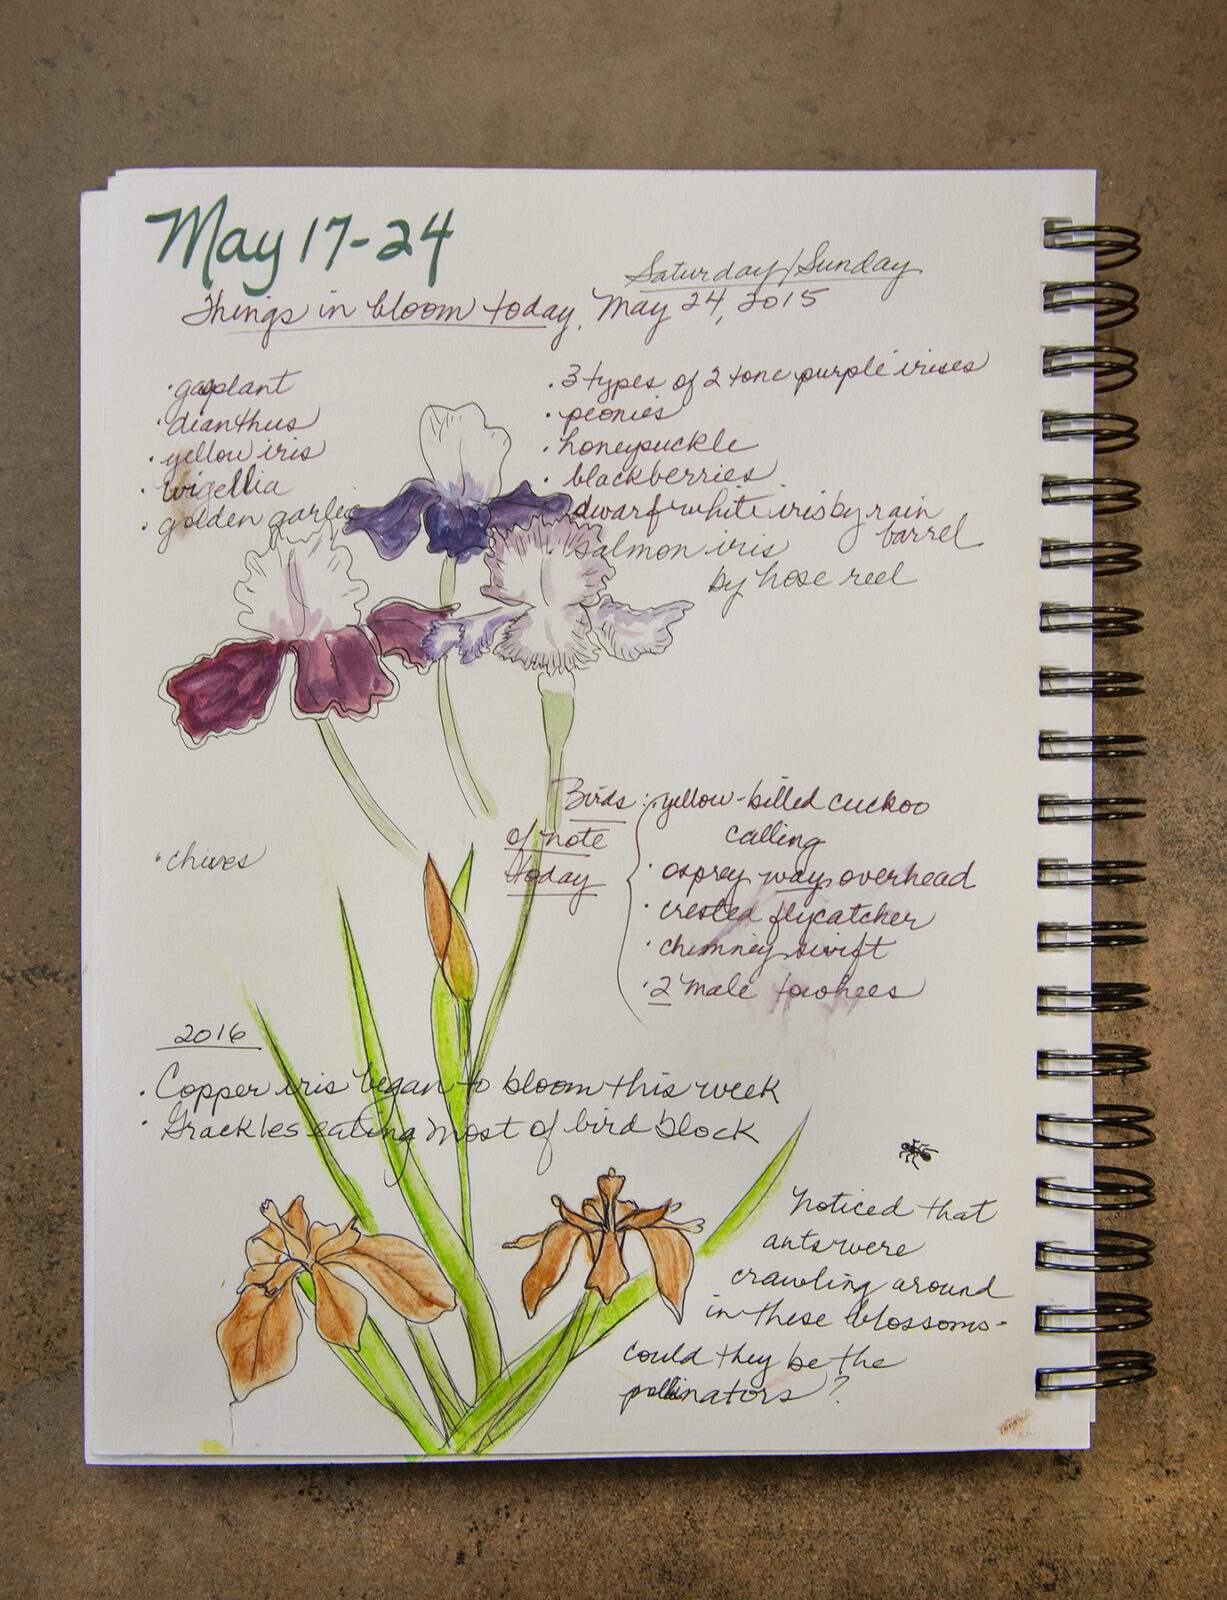 May 17-24
Saturday/Sunday
Things in bloom today, May 24, 2015
· gasplant
· dianthus
· yellow iris
· wigellia
· golden garlic
· 3 types of 2 tone purple irises
· peonies
· honeysuckle
· blackberries
· dwarf white iris by rain
barrel
· salmon iris
by hose reel
· chives
Birds :
of note
today
· yellow-billed cuckoo
calling
· osprey way overhead
· crested flycatcher
· chimney swift
· 2 male towhees
2016
· Copper iris began to bloom this week
· Grackles eating most of bird block
noticed that
ants were
crawling around
in these blossoms-
could they be the
pollinators?